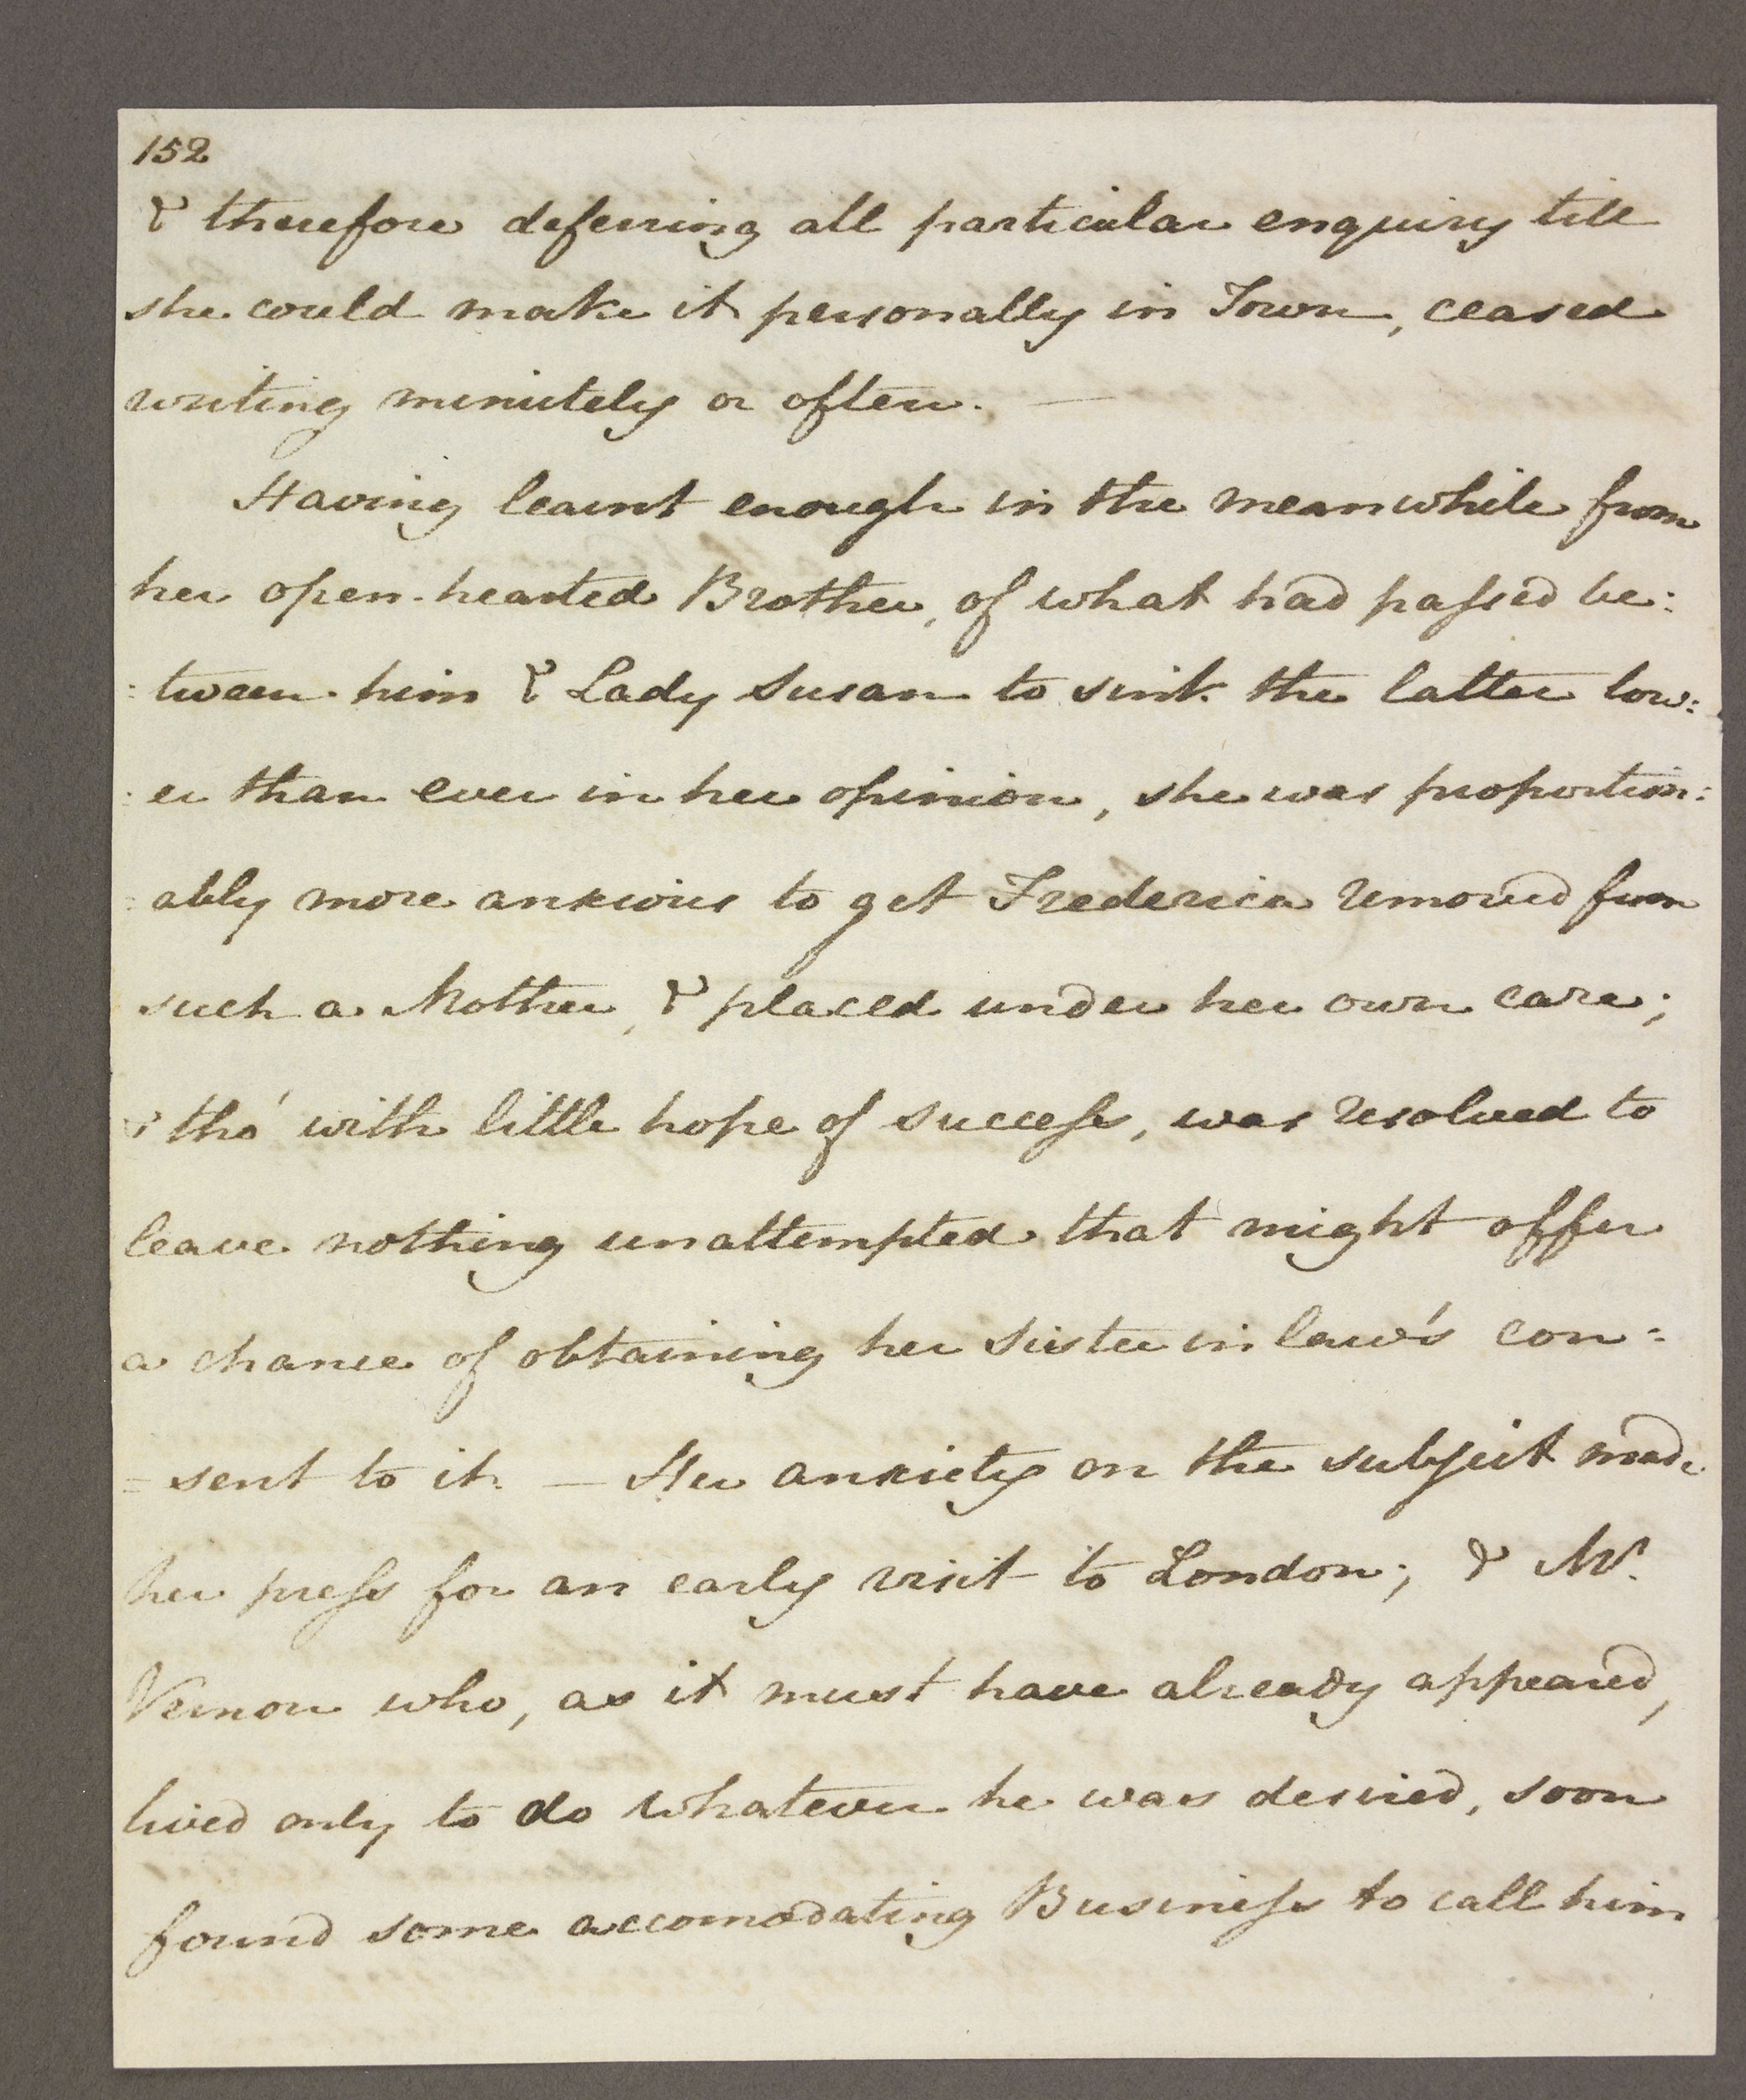 152
& therefore deferring all particular enquiry till
she could make it personally in Town, ceased
writing minutely or often. —
Having learnt enough in the meanwhile from
her open-hearted Brother, of what had passed be:
:tween him & Lady Susan to sink the latter low:
:er than ever in her opinion, she was proportion:
:ably more anxious to get Frederica removed from
such a Mother, & placed under her own care;
& tho' with little hope of success, was resolved to
leave nothing unattempted that might offer
a chance of obtaining her Sister in law's con=
=sent to it. — Her anxiety on the subject made
her press for an early visit to London; & Mr.
Vernon who, as it must have already appeared,
lived only to do whatever he was desired, soon
found some accomodating Business to call him